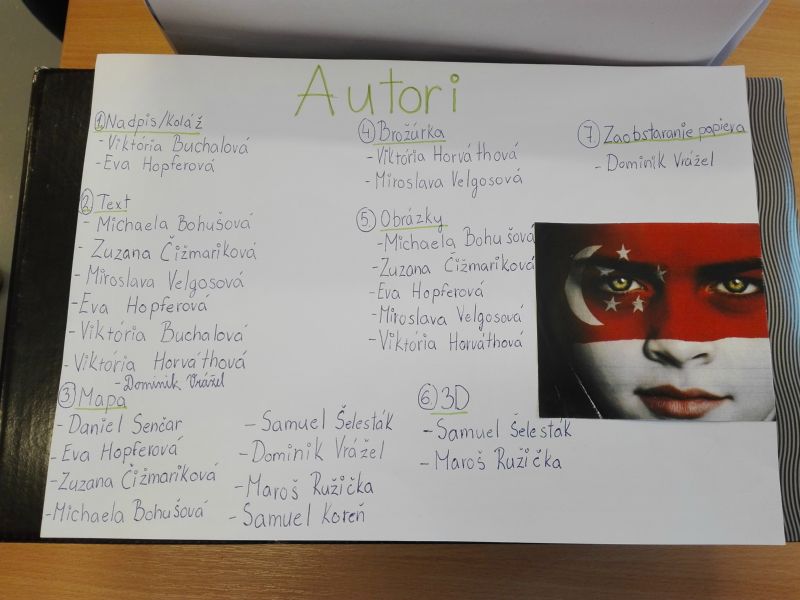 Autori
1 Nadpis/Koláž
- Viktória Buchalová
- Eva Hopferová
2 Text
- Michaela Bohušová
- Zuzana Čižmariková
- Miroslava Velgosová
- Eva Hopferová
- Viktória Buchalová
- Viktória Horváthová
- Dominik Vrážel
3 Mapa
- Daniel Senčar
- Eva Hopferová
- Zuzana Čižmariková
- Michaela Bohušová
- Samuel Šelesták
- Dominik Vrážel
- Maroš Ružička
- Samuel Koreň
4 Brožúrka
- Viktória Horváthová
- Miroslava Velgosová
5 Obrázky
- Michaela Bohušová
- Zuzana Čižmariková
- Eva Hopferová
- Miroslava Velgosová
- Viktória Horváthová
6 3D
- Samuel Šelesták
- Maroš Ružička
7 Zaobstaranie papiera
- Dominik Vrážel